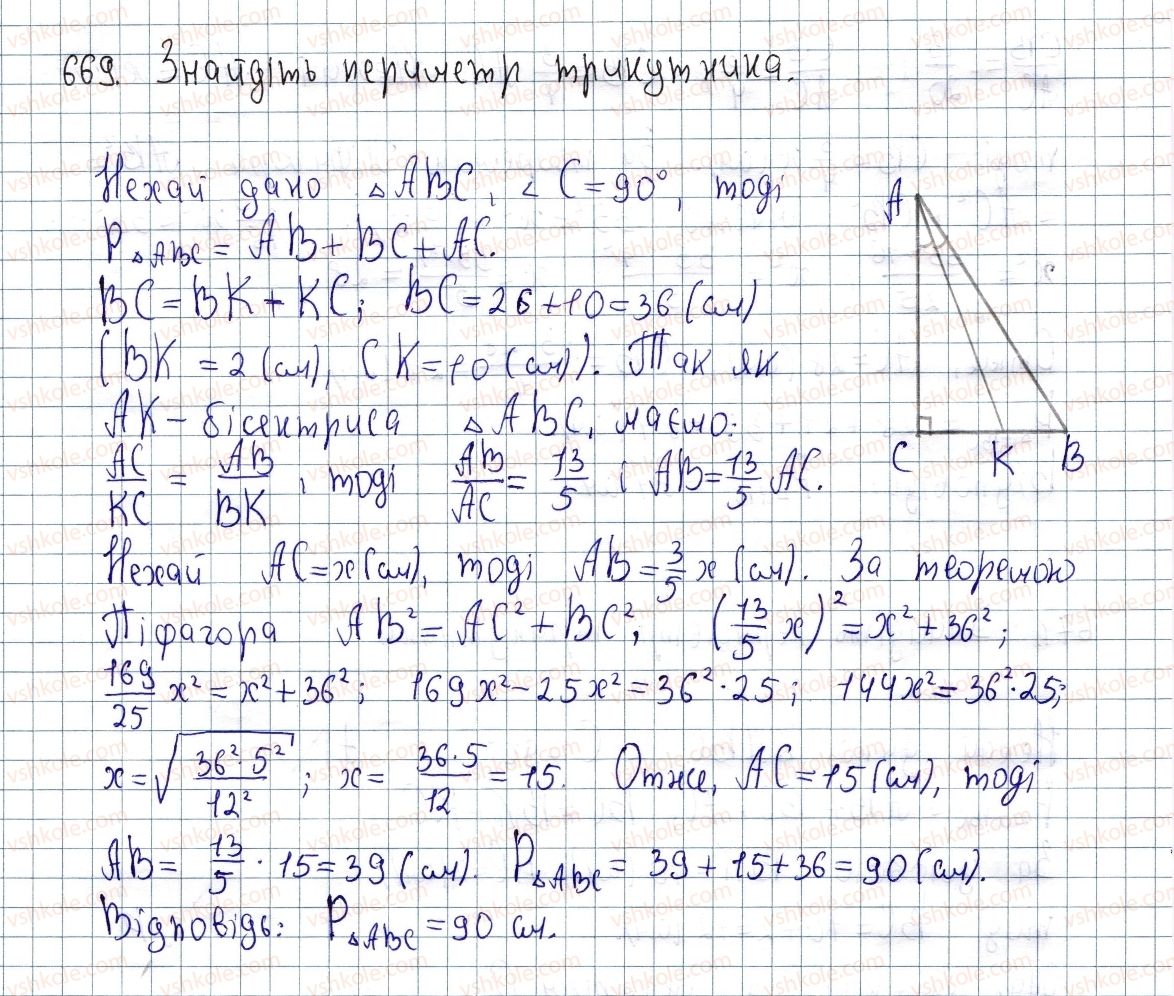 669. Знайдіть периметр трикутника.
Нехай дано △ABC, ∠C = 90°, тоді
P△ABC = AB + BC + AC.
BC = BK + KC; BC = 26 + 10 = 36 (см)
(BK = 2 (см), CK = 10 (см)). Так як
AK – бісектриса △ABC, маємо:
AC/KC = AB/BK, тоді AB/AC = 13/5 і AB = 13/5 AC.
Нехай AC = x (см), тоді AB = 3/5 x (см). За теоремою
Піфагора AB² = AC² + BC², (13/5 x)² = x² + 36²;
169/25 x² = x² + 36²; 169x² – 25x² = 36² · 25; 144x² = 36² · 25;
x = √(36² · 5²/12²); x = 36 · 5/12 = 15. Отже, AC = 15 (см), тоді
AB = 13/5 · 15 = 39 (см). P△ABC = 39 + 15 + 36 = 90 (см).
Відповідь: P△ABC = 90 см.
A
C K B
vshkole.com